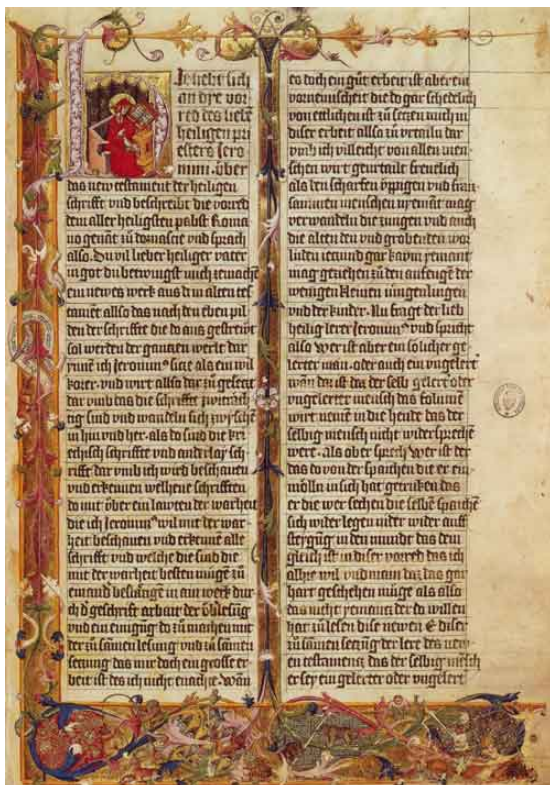 Hie hebt sich
an die vor
red des liebē
heiligen pri
esters Jero
nimi · über
das new testament der heiligen
schrifft vnd beschreibt die vorred
dem aller heiligsten pabst
genāt zů vnd sprach
also · Du vil lieber heiliger vater
in got du betwingst mich zemachē
ein newes werk aus dem alten tes
tamēt also das nach den eben pil
den der schriffte die do aus gestrewt
sol werden der gantzen werlt dar
ynnē ich Jeronimꝰ sitze als ein wil
korer · vnd wirt allso dar zů gesetzt
dar vmb das die schrifft zwitrāch
tig sind vnd wandeln sich zwyschē
in hin vnd her · als do sind die kri
echisch schriffte vnd anderlaÿ sch
rifft dar vmb ich wird beschauen
vnd erkennen welhene schrifften
do mit über ein lawten der warheit
die ich Jeronimꝰ wil mit der war
heit beschauen vnd erkennē alle
schrifft vnd welche die sind die
mit der warheit besten mügē zů
ein and in ain werk dur
ch dÿ geschrift arbait der
vnd ein einigūg do zů machen mit
der zů samen lesung vnd zů samen
setzung das mir doch ein grosse er
beit ist des ich nicht enachte · Wān
es doch ein gůt erbeit ist aber ein
vermessicheit die do gar schedlich
von ettlichen ist zů setzen mich in
diser erbeit allso zů vrtailn dar
vmb ich villeicht von allen men
schen wirt geurtailt frenelich
als den scharfen üppigen vnd
samnen menschen nyemāt mag
verwandeln die zungen vnd auch
die alten den vnd grobenden wor
luden ietzund gar kaym yemant
mag geziehen zů den anfengē der
wenigen kleinen
vnd der kinder · Nu fraget der lieb
heilig lerer Jeronimꝰ vnd spricht
also Wer ist aber ein solicher ge
lerter man · oder auch ein vngelert
mān das ist das der selb gelert oder
vngelerter mensch das
wirt nemē in die hende das der
selbig mensch nicht widersprechē
werd · als ober sprech Wer ist der
das do von der spaichen die er ein
mōlln in sich hat getriken das
er die wer sechen die selbē spaichē
sich wider legen nider wider auff
steygūg in den munde das dem
gleich ist in diser vorred das ich
alhie wil vnd main daz das gar
hart geschehen müge als also
das nicht yemantz der do willen
hat zů lesen dise newen diser
zů samen setzūg der lere des new
en testamentz das der selbig mēsch
er sey ein gelerter oder vngelert